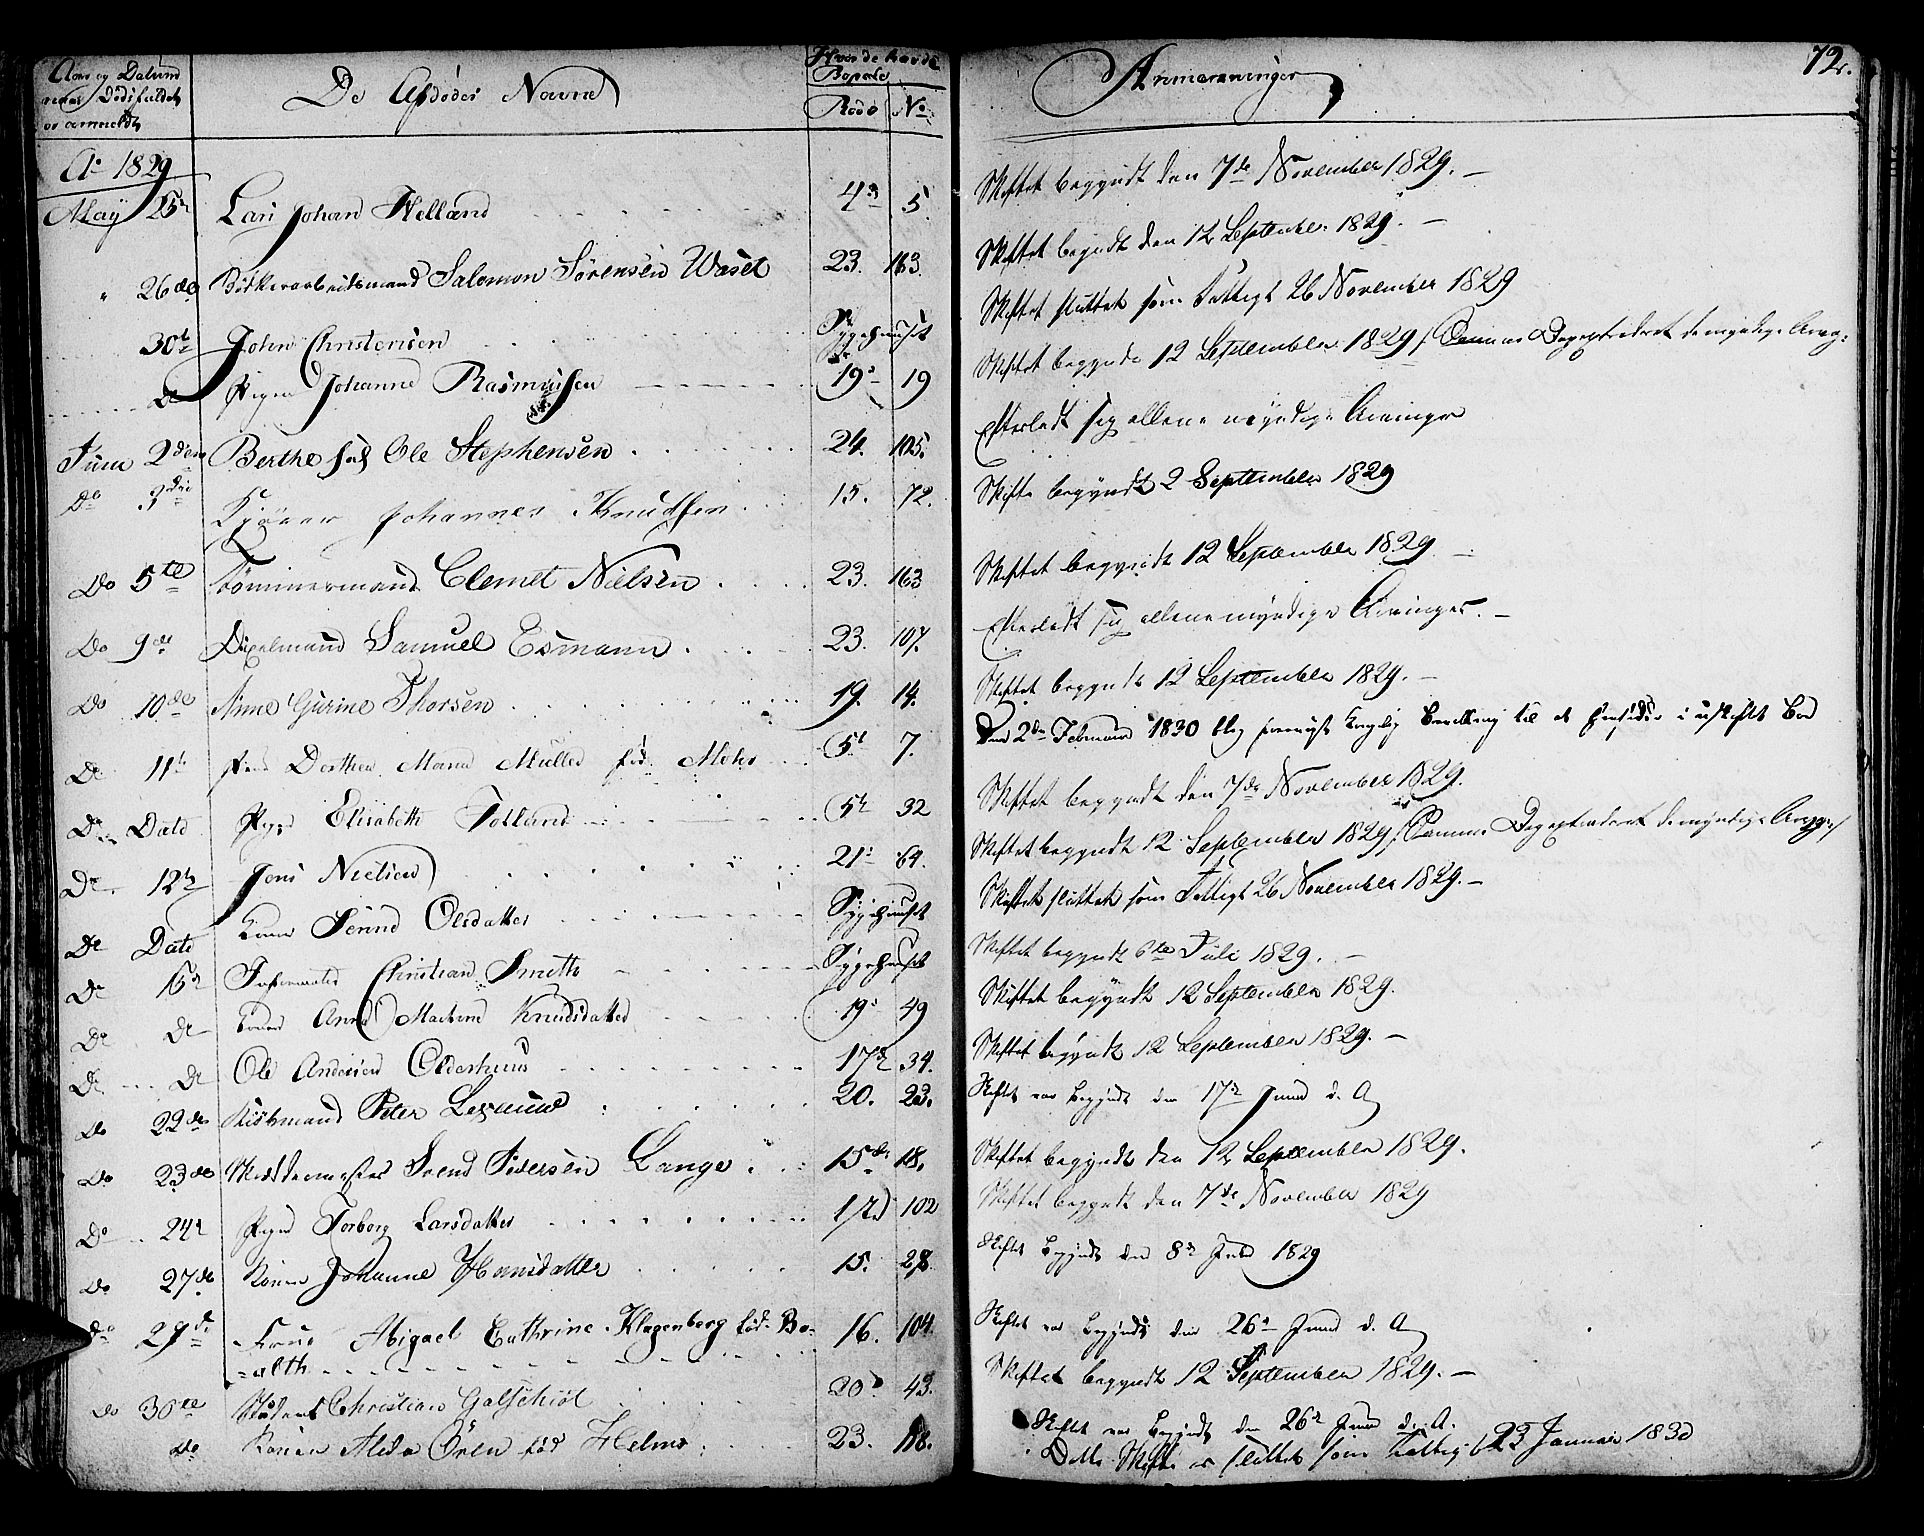 72.
Aar og Datum
naar Dödsfaldet
er anmeldt
De Afdødes Navne
Hvor de havde
Bopæl
Rode No
Anmærkninger
Ao 1829
May 25de Lars Johan Helland 4de 5. Skiftet begyndt den 7de November 1829. —
" 26de Salomon Sörensen Waset 23. 163. Skiftet begyndt den 12 September 1829. —
30te John Christensen Sygehuset Skiftet sluttet som Fattigt 26 November 1829
do Pigen Johanne Rasmussen 19de 19 Skiftet begyndt 12 September 1829
Juni 2den Berthe Ole Stephensen 24. 105. Efterladt sig allene myndige Arvinger
Do 3die Johannes Knudsen 15. 72. Skifte begyndt 2 September 1829
Do 5te Tömmermand Clemet Nielsen 23. 163 Skiftet begyndt 12 September 1829 —
Do 9de Samuel Esmann 23. 107. Efterladt sig allene myndige Arvinger. —
Do 10de Anne Gurine Thorsen 19. 14. Skiftet begyndt 12 September 1829. —
Do 11te Dorthea Maria Müller föd Mohr 5te 7. Den 2den Februar 1830 blev Kongelig Bevilling til at hensidde i uskiftet Bo
Do Dato Pigen Elisabeth Tolland 5te 32 Skiftet begyndt den 7de November 1829.
Do 12te Jens Nielsen 21de 64. Skiftet begyndt 12 September 1829
Do Dato Konen Olsdatter Sygehuset Skiftet sluttet som Fattigt 26 November 1829. —
Do 15de Christian Smith Sygehuset Skiftet begyndt 6te Juli 1829. —
Do Do Anne Marthine Knudsdatter 19de 49 Skiftet begyndt 12 September 1829.
Do Do Ole Andersen Olderhuus 17de 34. Skiftet begyndt 12 September 1829. —
Do 22de Peter 20. 23. Skiftet var begyndt den 17de Juni d. A.
Do 23de Svend Pedersen Lange 15de 18. Skiftet begyndt den 12 September 1829.
Do 24de Pigen Torborg Larsdatter 17de 102 Skiftet begyndt den 7de November 1829
Do 27de Konen Johanne Hansdatter 15. 28. Skiftet begyndt den 8de 1829
Do 29de Frue Abigael Cathrine Klagenberg föd Bo- 16. 104. Skiftet var begyndt den 26de Juni d. A.
=alth
Do 30te Student Christian Galschiöt 20de 43. Skiftet begyndt 12 September 1829. —
do Konen Alida Ören föd Helms 23. 118. Skiftet var begyndt den 26de Juni d. A.
Dette Skifte er sluttet som Fattigt 22 Januar 1830